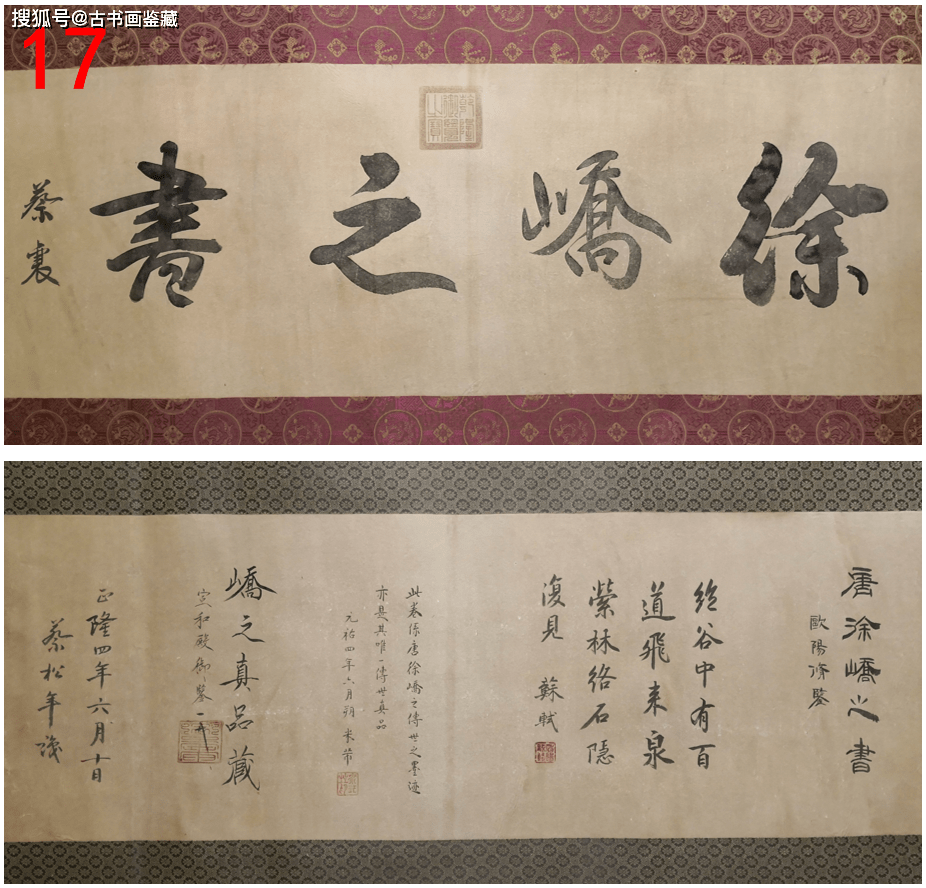 搜狐号@古书画鉴藏
17
徐嶠之書
蔡襄
乾隆御覽之寶
唐徐嶠之書
歐陽脩鑒
谷中有百
道飛来泉
縈林絡石隱
復見 蘇軾
此卷係唐徐嶠之傳世之墨迹
亦是其唯一傳世真品
元祐四年六月朔 米芾
嶠之真品藏
宣和殿御鑒
正隆四年六月十日
蔡松年識